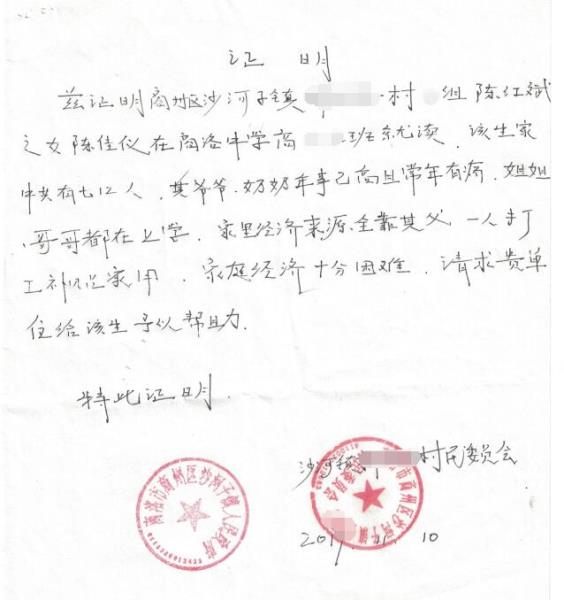 证 明
兹证明商州区沙河子镇 村 组 陈红斌
之女 陈佳仪 在商洛中学高 班就读，该生家
中共有七口人，其爷爷、奶奶年事已高且常年有病，姐姐
、哥哥都在上学，家里经济来源全靠其父一人打
工补贴家用，家庭经济十分困难，请求贵单
位给该生予以帮助。
特此证明.
沙河子镇 村民委员会
20 . 10
商洛市商州区沙河子镇人民政府
市商州区沙河子镇